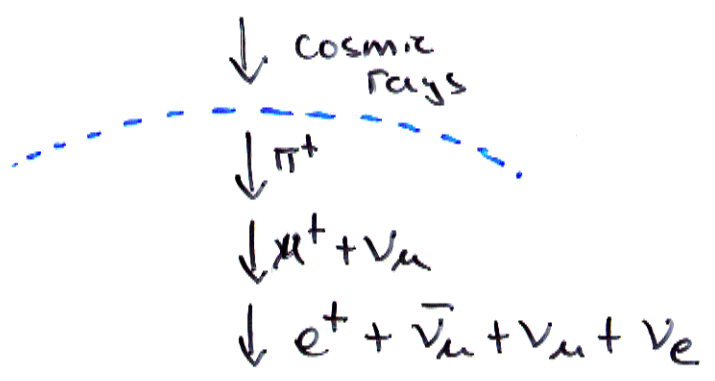 ↓ cosmic
rays
↓ π⁺
↓ μ⁺ + ν_μ
↓ e⁺ + ν̄_μ + ν_μ + ν_e